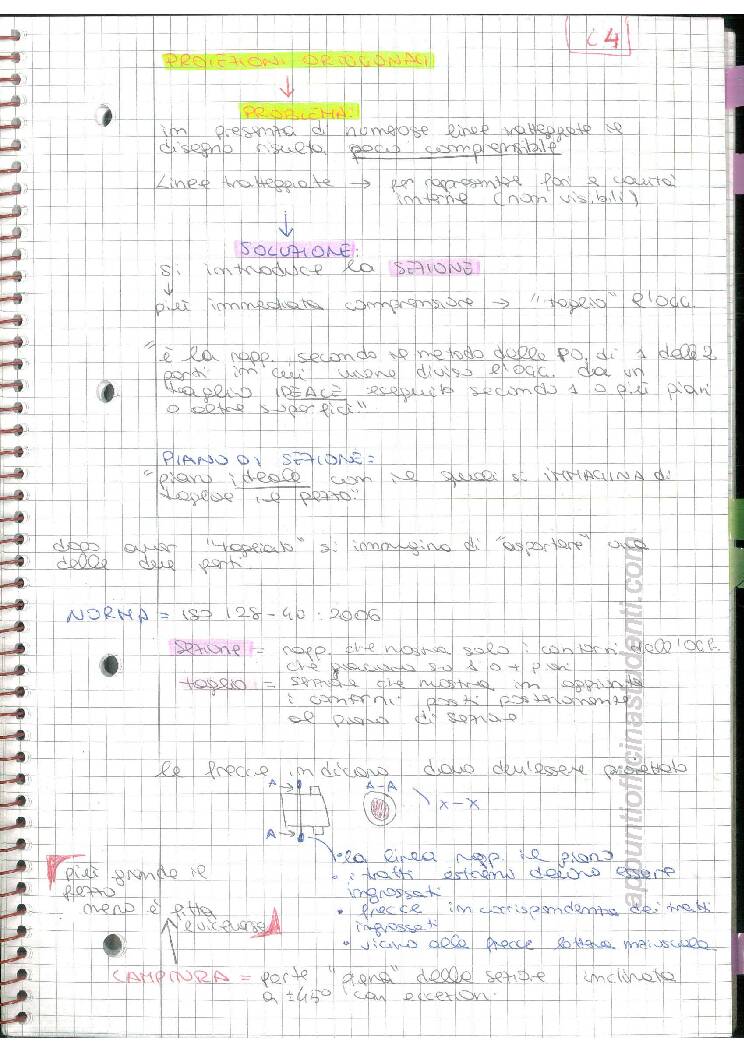 L4
PROIEZIONI ORTOGONALI
PROBLEMA:
in presenza di numerose linee tratteggiate il
disegno risulta poco comprensibile
Linee tratteggiate → per rappresentare fori e cavità
interne (non visibili)
SOLUZIONE:
si introduce la SEZIONE
più immediata comprensione → "taglio" l'ogg.
"è la rapp. secondo il metodo delle PO. di 1 delle 2
parti in cui viene diviso l'ogg. da un
taglio IDEALE eseguito secondo 1 o più piani
o altre superfici"
PIANO DI SEZIONE:
"piano ideale con il quale si IMMAGINA di
tagliare il pezzo"
dopo aver "tagliato" si immagina di "asportare" una
delle due parti
NORMA = ISO 128-40:2006
Sezione = rapp. che mostra solo i contorni dell'ogg.
che giacciono su 1 o + piani
taglio = sezione che mostra in aggiunta
i contorni posti posteriormente
al piano di sezione
le frecce indicano dove dev'essere proiettato
A A-A
X-X
A
• la linea rapp. il piano
• i tratti estremi devono essere
ingrossati
• frecce in corrispondenza dei tratti
ingrossati
• vicino alle frecce lettera maiuscola
più grande il
pezzo
meno è fitta
e viceversa
CAMPITURA = parte "piena" della sezione inclinata
a ±45° con eccezioni.
appuntiofficinastudenti.com